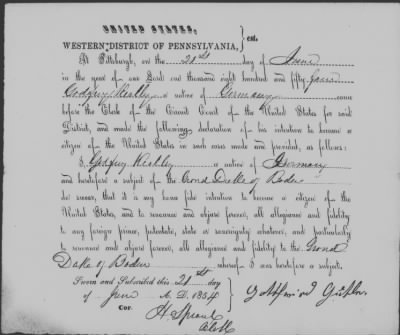 UNITED STATES,
WESTERN DISTRICT OF PENNSYLVANIA, } sst.
At Pittsburgh, on the 21st day of June
in the year of our Lord one thousand eight hundred and fifty four
a native of Germany came
before the Clerk of the Circuit Court of the United States for said
District, and made the following declaration of his intention to become a
citizen of the United States in such cases made and provided, as follows:
I, Godfrey a native of Germany
and heretofore a subject of the Grand Duke of Baden
do swear, that it is my bona fide intention to become a citizen of the
United States, and to renounce and abjure forever, all allegiance and fidelity
to any foreign prince, potentate, state or sovereignty whatever, and particularly
to renounce and abjure forever, all allegiance and fidelity to the Grand
Duke of Baden whereof I am heretofore a subject.
Sworn and Subscribed this 21st day
of June A. D. 1854
Cor. H Sproul
Clk